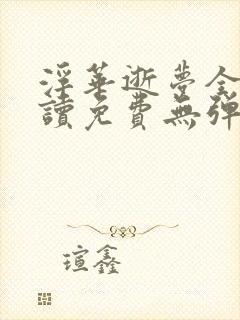 淫華逝夢全
讀免費無彈
瑄鑫